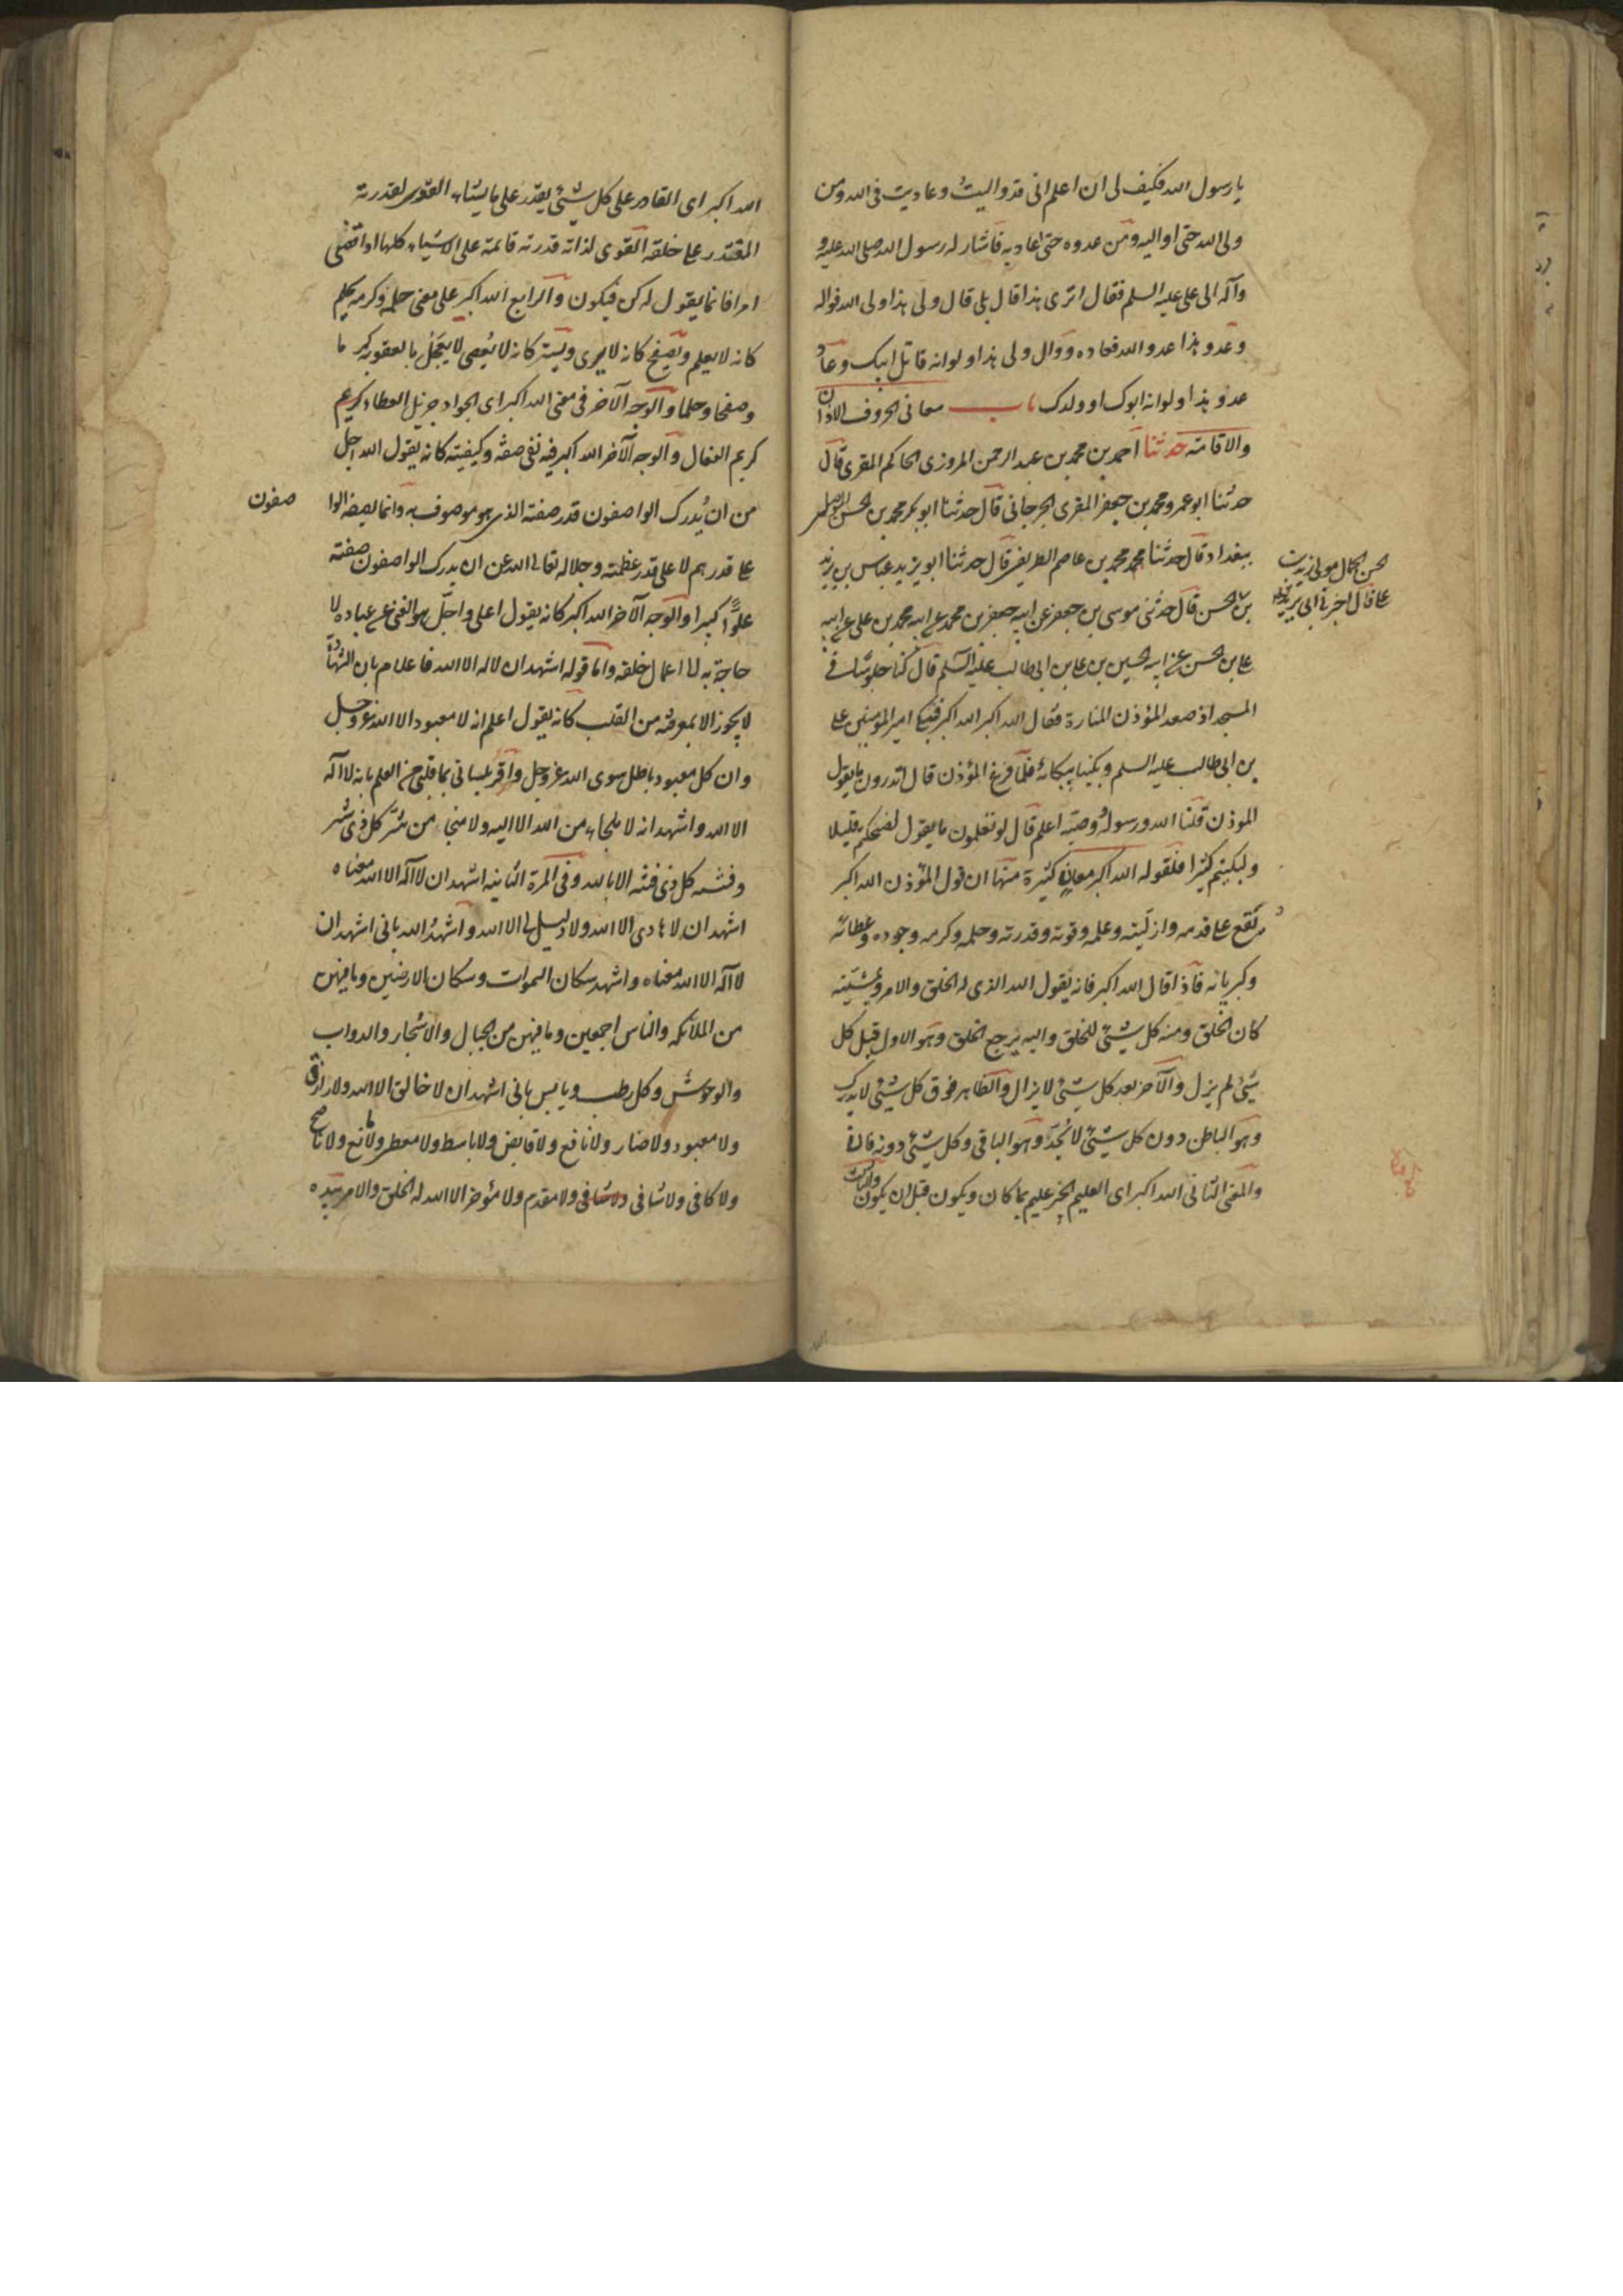 يا رسول الله فكيف لى ان اعلم انى قد واليت وعاديت فى الله ومن
ولى الله حتى اواليه ومن عدوه حتى اعاديه فاشار له رسول الله صلى الله عليه و
وآله الى على عليه السلم فقال اترى هذا قال بلى قال ولى هذا ولى الله فواله
وعدو هذا عدو الله فعاده ووال ولى هذا ولو انه قاتل ابيك وعاد
عدو هذا ولو انه ابوك او ولدك باب معانى الحروف الاذان
والاقامة حدثنا احمد بن محمد بن عبد الرحمن المروزى الحاكم المقرى قال
حدثنا ابو عمرو محمد بن جعفر المقرى الجرجانى قال حدثنا ابو بكر محمد بن الحسن الموصلى
ببغداد قال حدثنا محمد بن عاصم الطريفى قال حدثنا ابو يزيد عباس بن يزيد
بن الحسن قال حدثنى موسى بن جعفر عن ابيه جعفر بن محمد عن ابيه محمد بن على عن ابيه
على بن الحسن عن ابيه الحسين بن على بن ابى طالب عليه السلم قال كنا جلوسا فى
المسجد اذ صعد المؤذن المنارة فقال الله اكبر الله اكبر فبكى امير المؤمنين على
بن ابى طالب عليه السلم وبكينا ببكائه فلما فرغ المؤذن قال اتدرون ما يقول
الموذن قلنا الله ورسوله ووصيه اعلم قال لو تعلمون ما يقول لضحكتم قليلا
ولبكيتم كثيرا فلقوله الله اكبر معان كثيرة منها ان قول المؤذن الله اكبر
يقع على قدمه وازليته وعلمه وقوته وقدرته وحلمه وكرمه وجوده وعطائه
وكبريائه فاذا قال الله اكبر فانه يقول الله الذى له الخلق والامر وبمشيته
كان الخلق ومنه كل شىء للخلق واليه يرجع الخلق وهو الاول قبل كل
شىء لم يزل والآخر بعد كل شىء لا يزال والظاهر فوق كل شىء لا يدرك
وهو الباطن دون كل شىء لا يحد وهو الباقى وكل شىء دونه فان
والمعنى الثانى الله اكبر اى العليم الخبير عليم بما كان ويكون قبل ان يكون والثالث
الحسن الكحال مولى زيد بن
على قال اخبرنى ابى يزيد
الله اكبر اى القادر على كل شىء يقدر على ما يشاء القوى لقدرته
المقتدر على خلقه القوى لذاته قدرته قائمة على الاشياء كلها اذا قضى
امرا فانما يقول له كن فيكون والرابع الله اكبر على معنى حلمه وكرمه يحلم
كانه لا يعلم ويصفح كانه لا يرى ويستر كانه لا يعصى لا يعجل بالعقوبة كرما
وصفحا وحلما والوجه الآخر فى معنى الله اكبر اى الجواد جزيل العطاء كريم
كريم الفعال والوجه الآخر الله اكبر فيه نفى صفته وكيفيته كانه يقول الله اجل
من ان يدرك الواصفون قدر صفته الذى هو موصوف به وانما يصفه الوا صفون
على قدرهم لا على قدر عظمته وجلاله تعالى الله عن ان يدرك الواصفون صفته
علوا كبيرا والوجه الآخر الله اكبر كانه يقول اعلى واجل وهو الغنى عن عباده لا
حاجة به الى اعمال خلقه واما قوله اشهد ان لا اله الا الله فاعلام بان الشهادة
لا يجوز الا بمعرفته من القلب كانه يقول اعلم انه لا معبود الا الله عز وجل
وان كل معبود باطل سوى الله عز وجل واقر بلسانى بما فى قلبى من العلم بانه لا اله
الا الله واشهد انه لا ملجاء من الله الا اليه ولا منجا من شر كل ذى شر
وفتنه كل ذى فتنه الا بالله وفى المرة الثانيه اشهد ان لا اله الا الله معناه
اشهد ان لا هادى الا الله ولا دليل الى الا الله واشهد الله بانى اشهد ان
لا اله الا الله معناه واشهد سكان السموات وسكان الارضين وما فيهن
من الملائكه والناس اجمعين وما فيهن من الجبال والاشجار والدواب
والوحوش وكل رطب ويابس بانى اشهد ان لا خالق الا الله ولا رازق
ولا معبود ولا ضار ولا نافع ولا قابض ولا باسط ولا معطى ولا مانع ولا ناصح
ولا كافى ولا شافى ولا شافى ولا مقدم ولا مؤخر الا الله له الخلق والامر بيده